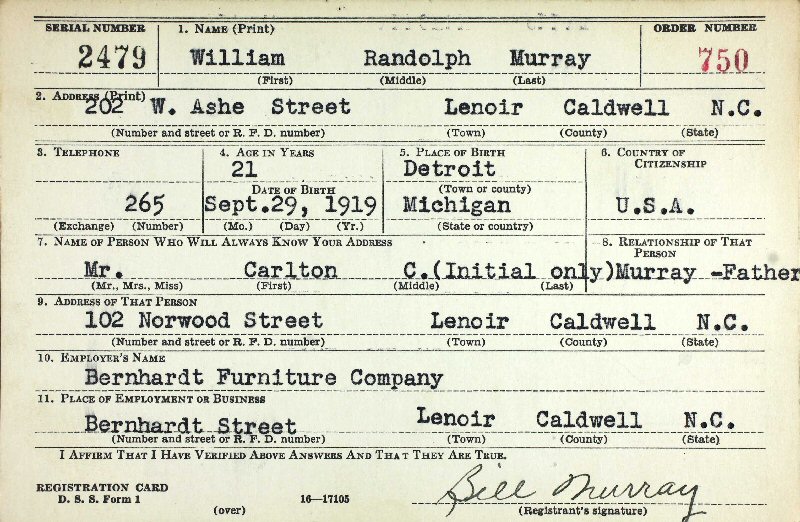 SERIAL NUMBER 1. NAME (Print) ORDER NUMBER
2479 William Randolph Murray 750
(First) (Middle) (Last)
2. ADDRESS (Print)
202 W. Ashe Street Lenoir Caldwell N.C.
(Number and street or R. F. D. number) (Town) (County) (State)
3. TELEPHONE 4. AGE IN YEARS 5. PLACE OF BIRTH 6. COUNTRY OF CITIZENSHIP
21 Detroit
DATE OF BIRTH (Town or county)
265 Sept.29, 1919 Michigan U.S.A.
(Exchange) (Number) (Mo.) (Day) (Yr.) (State or country)
7. NAME OF PERSON WHO WILL ALWAYS KNOW YOUR ADDRESS 8. RELATIONSHIP OF THAT PERSON
Mr. Carlton C.(Initial only)Murray -Father
(Mr., Mrs., Miss) (First) (Middle) (Last)
9. ADDRESS OF THAT PERSON
102 Norwood Street Lenoir Caldwell N.C.
(Number and street or R. F. D. number) (Town) (County) (State)
10. EMPLOYER'S NAME
Bernhardt Furniture Company
11. PLACE OF EMPLOYMENT OR BUSINESS
Bernhardt Street Lenoir Caldwell N.C.
(Number and street or R. F. D. number) (Town) (County) (State)
I AFFIRM THAT I HAVE VERIFIED ABOVE ANSWERS AND THAT THEY ARE TRUE.
Bill Murray
REGISTRATION CARD
D. S. S. Form 1 16—17105
(over) (Registrant's signature)